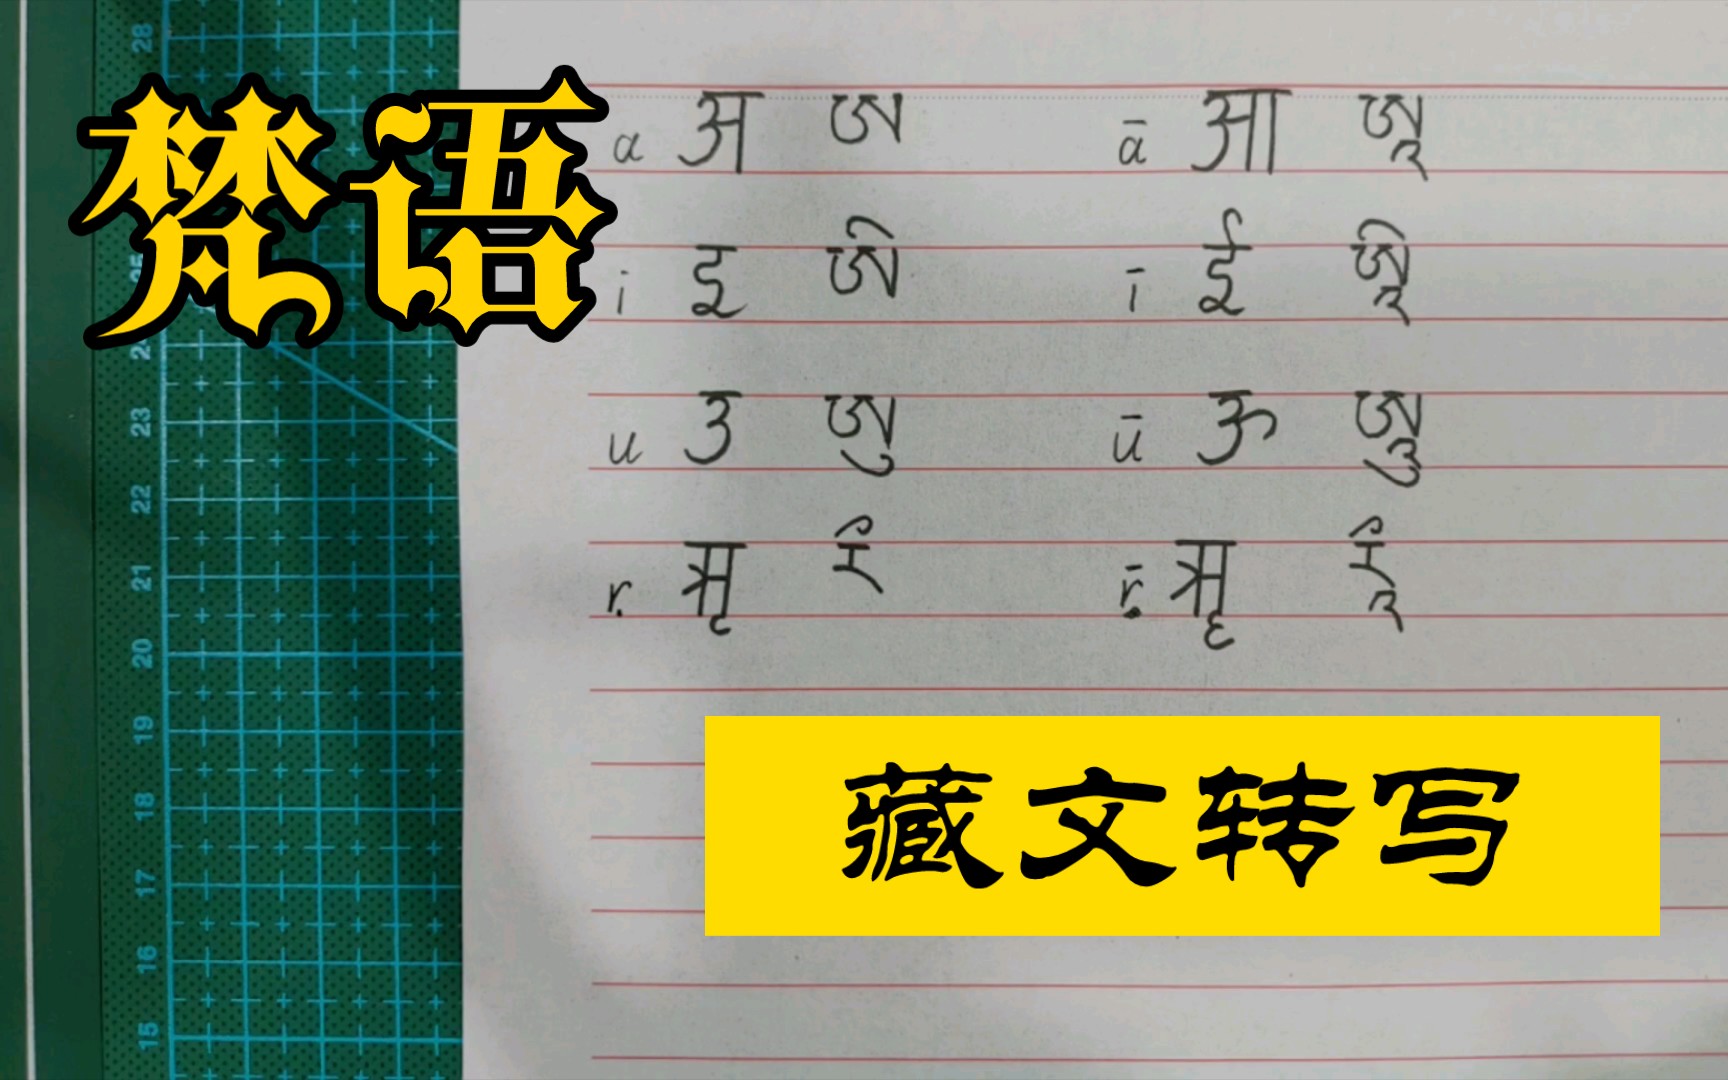 梵语
a अ ཨ ā आ ཨཱ
i इ ཨི ī ई ཨཱི
u उ ཨུ ū ऊ ཨཱུ
ṛ ऋ རྀ ṝ ॠ རཱྀ
藏文转写
28
23
22
21
20
19
18
17
16
15